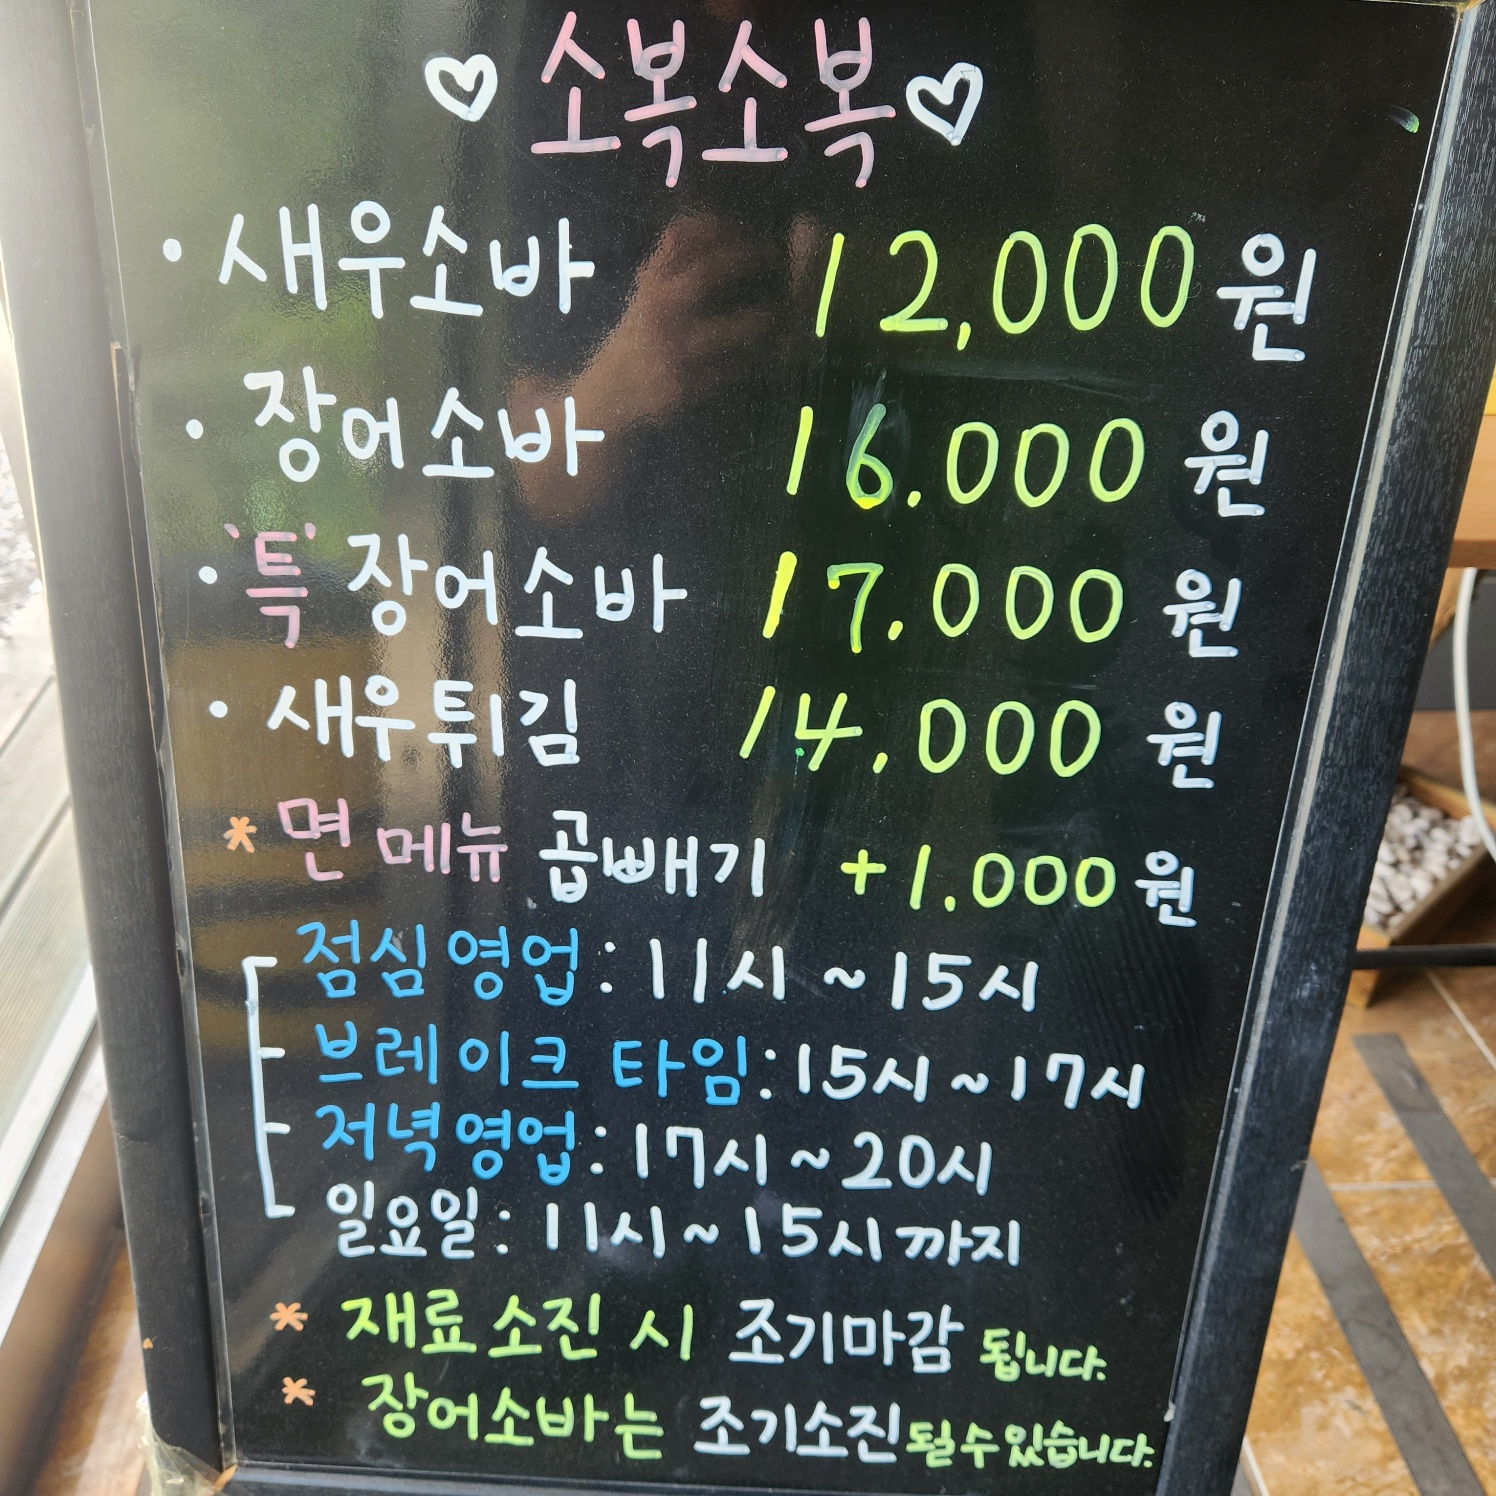 ♡ 소복소복 ♡
· 새우소바 12,000원
· 장어소바 16.000원
· '특' 장어소바 17.000원
· 새우튀김 14.000원
* 면 메뉴 곱빼기 +1.000원
점심영업: 11시~15시
브레이크 타임: 15시~17시
저녁영업: 17시~20시
일요일: 11시~15시까지
* 재료소진 시 조기마감 됩니다.
* 장어소바는 조기소진될수있습니다.